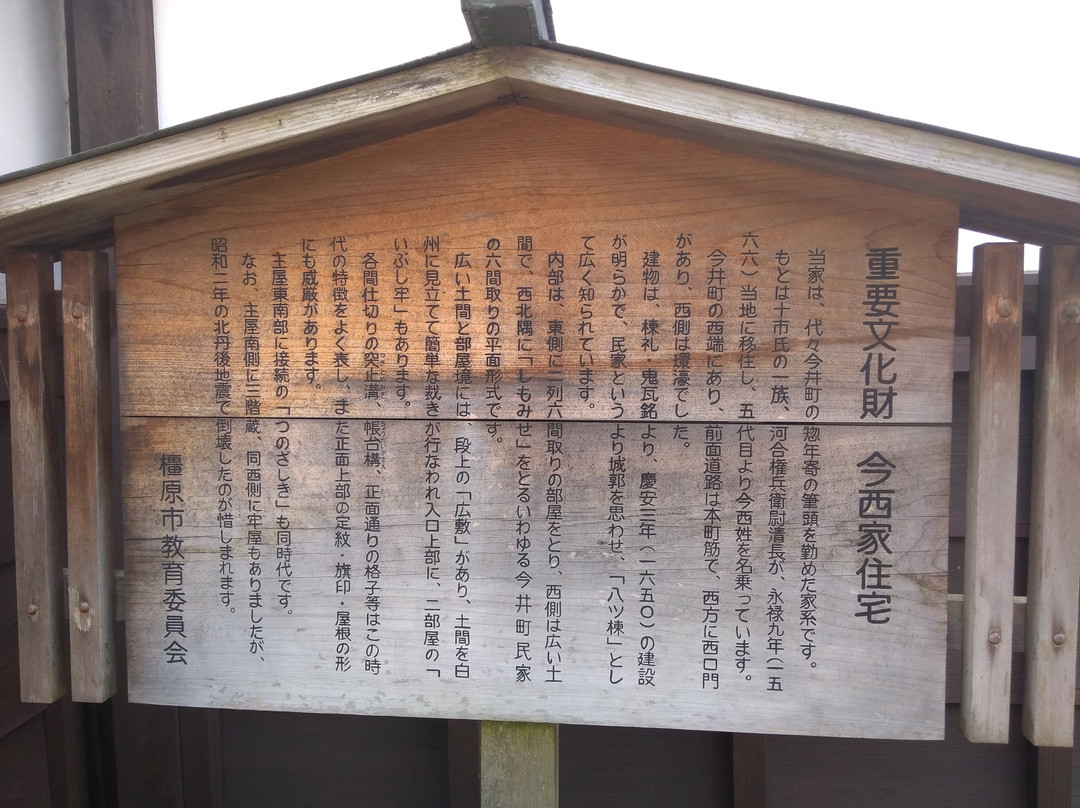 重要文化財　今西家住宅
当家は、代々今井町の惣年寄の筆頭を勤めた家系です。
もとは十市氏の一族、河合権兵衛尉清長が、永禄九年（一五
六六）当地に移住し、五代目より今西姓を名乗っています。
今井町の西端にあり、前面道路は本町筋で、西方に西口門
があり、西側は環濠でした。
建物は、棟札、鬼瓦銘より、慶安三年（一六五〇）の建設
が明らかで、民家というより城郭を思わせ、「八ツ棟」とし
て広く知られています。
内部は、東側に二列六間取りの部屋をとり、西側は広い土
間で、西北隅に「しもみせ」をとるいわゆる今井町民家
の六間取りの平面形式です。
広い土間と部屋境には、段上の「広敷」があり、土間を白
州に見立てて簡単な裁きが行なわれ入口上部に、二部屋の「
いぶし牢」もあります。
各間仕切りの突止溝、帳台構、正面通りの格子等はこの時
代の特徴をよく表し、また正面上部の定紋・旗印・屋根の形
にも威厳があります。
主屋東南部に接続の「つのざしき」も同時代です。
なお、主屋南側に三階蔵、同西側に牢屋もありましたが、
昭和二年の北丹後地震で倒壊したのが惜しまれます。
橿原市教育委員会